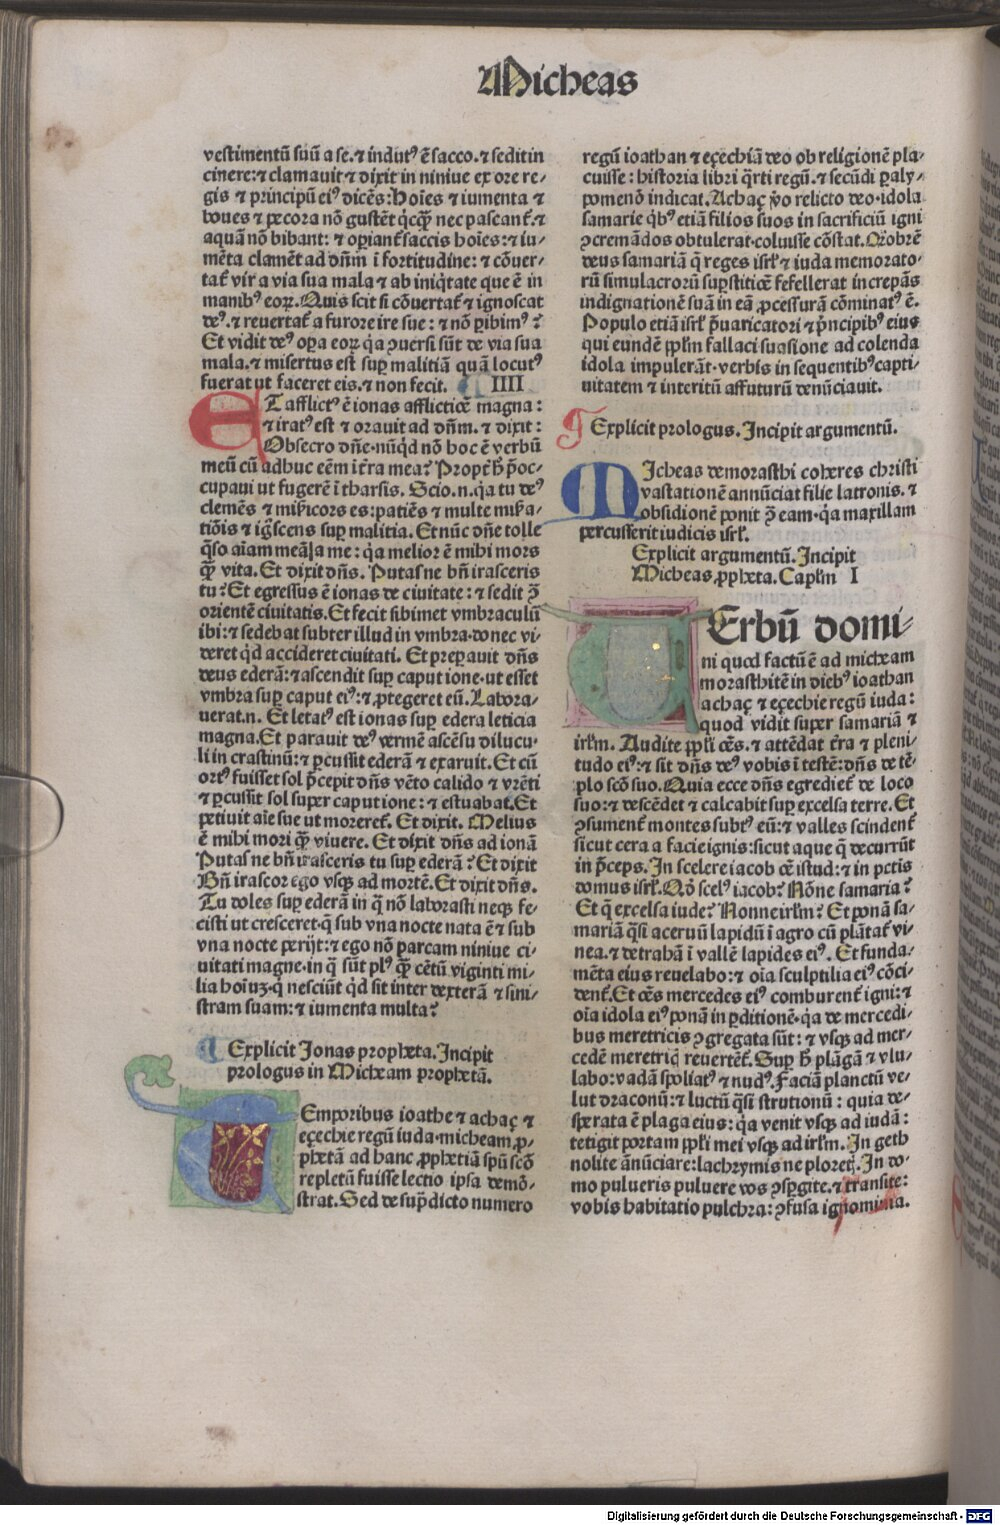 Micheas
vestimentū suū a se.⁊ indutꝰ ē sacco.⁊ sedit in
cinere:⁊ clamauit ⁊ dixit in niniue ex ore re⸗
gis ⁊ principū eiꝰ dicēs:hoīes ⁊ iumenta ⁊
boues ⁊ pecora nō gustēt q̄cꝙ̄ nec pascant̄.⁊
aquā nō bibant: ⁊ oꝑiant̄ saccis hoīes:⁊ iu⸗
mēta clamēt ad dn̄m ī fortitudine: ⁊ cōuer⸗
tat̄ vir a via sua mala ⁊ ab iniq̇tate que ē in
manibꝰ eoꝝ.Quis scit si cōuertat̄ ⁊ ignoscat
deꝰ.⁊ reuertat̄ a furore ire sue: ⁊ nō ꝑibimꝰ?
Et vidit deꝰ oꝑa eoꝝ q̇a ꝯuersi sūt de via sua
mala.⁊ misertus est suꝑ malitiā quā locutꝰ
fuerat ut faceret eis.⁊ non fecit. IIII
ET afflictꝰ ē ionas afflictiōe magna:
⁊ iratꝰ est ⁊ orauit ad dn̄m.⁊ dixit:
Obsecro dn̄e.nūq̇d nō hoc ē verbū
meū cū adhuc eēm ī t̄ra mea? Propt̄ h̄ p̄oc⸗
cupaui ut fugerē ī tharsis. Scio.n.q̇a tu deꝰ
clemēs ⁊ mīs̄icors es:patiēs ⁊ multe mīs̄a⸗
tiōis ⁊ ig̈scens suꝑ malitia. Et nūc dn̄e tolle
q̄so aīam meā a me: q̇a melior ē mihi mors
ꝙ̄ vita. Et dixit dn̄s. Putasne bn̄ irasceris
tu? Et egressus ē ionas de ciuitate: ⁊ sedit ꝯ̄
orientē ciuitatis.Et fecit sibimet vmbraculū
ibi:⁊ sedebat subter illud in vmbra.donec vi⸗
deret q̇d accideret ciuitati. Et preꝑauit dn̄s
deus ederā:⁊ ascendit suꝑ caput ione.ut esset
vmbra suꝑ caput eiꝰ:⁊ ꝓtegeret eū.Labora⸗
uerat.n. Et letatꝰ est ionas suꝑ edera leticia
magna.Et parauit deꝰ vermē ascēsu dilucu⸗
li in crastinū:⁊ ꝑcussit ederā ⁊ exaruit. Et cū
ortꝰ fuisset sol p̄cepit dn̄s vēto calido ⁊ vrēti
⁊ ꝑcussit sol super caput ione:⁊ estuabat.Et
petiuit aīe sue ut moreret̄. Et dixit. Melius
ē mihi mori ꝙ̄ viuere. Et dixit dn̄s ad ionā
Putas ne bn̄ irasceris tu suꝑ ederā? Et dixit
Bn̄ irascor ego vsqꝫ ad mortē.Et dixit dn̄s.
Tu doles suꝑ ederā in q̄ nō laborasti neqꝫ fe⸗
cisti ut cresceret.q̄ sub vna nocte nata ē ⁊ sub
vna nocte perijt:⁊ ego nō parcam niniue ci⸗
uitati magne.in q̄ sūt plꝰ ꝙ̄ cētū viginti mi⸗
lia hoīuꝫ.q̇ nesciūt q̇d sit inter dexterā ⁊ sini⸗
stram suam:⁊ iumenta multa?
Explicit Jonas propheta.Incipit
prologus in Micheam prophetā.
TEmporibus ioathe ⁊ achaç ⁊
eçechie regū iuda.micheam ꝓ⸗
phetā ad hanc ꝓphetiā spū scō
repletū fuisse lectio ipsa demō⸗
strat.Sed de sup̄dicto numero
regū ioathan ⁊ eçechiā deo ob religionē pla⸗
cuisse: historia libri q̄rti regū.⁊ secūdi ꝑaly⸗
pomenō indicat.Achaç v̊o relicto deo.idola
samarie q̇bꝰ etiā filios suos in sacrificiū igni
ꝯcremādos obtulerat.coluisse cōstat.Q̄obrē
deus samariā q̄ reges isrl̄ ⁊ iuda memorato⸗
rū simulacrorū suꝑstitiōe fefellerat increpās
indignationē suā in eā ꝓcessurā cōminatꝰ ē.
Populo etiā isrl̄ p̄uaricatori ⁊ p̄ncipibꝰ eius
qui eundē ppl̄m fallaci suasione ad colenda
idola impulerāt.verbis in sequentibꝰ capti⸗
uitatem ⁊ interitū affuturū denūciauit.
Explicit prologus.Incipit argumentū.
MJcheas demorasthi coheres christi
vastationē annūciat filie latronis.⁊
obsidionē ponit ꝯ̄ eam.q̇a maxillam
percusserit iudicis isrl̄.
Explicit argumentū.Incipit
Micheas ꝓpheta.Caplm̄ I
VErbū domi⸗
ni quod factū ē ad micheam
morasthitē in diebꝰ ioathan
achaç ⁊ eçechie regū iuda:
quod vidit super samariā ⁊
irlm̄. Audite ppl̄i oēs.⁊ attēdat t̄ra ⁊ pleni⸗
tudo eiꝰ:⁊ sit dn̄s deꝰ vobis ī testē:dn̄s de tē⸗
plo scō suo.Quia ecce dn̄s egrediet̄ de loco
suo:⁊ descēdet ⁊ calcabit suꝑ excelsa terre. Et
ꝯsument̄ montes subtꝰ eū:⁊ valles scindent̄
sicut cera a facie ignis:sicut aque q̄ decurrūt
in p̄ceps.In scelere iacob oē istud:⁊ in pctīs
domus isrl̄.Qḋ scelꝰ iacob? Nōne samaria?
Et q̄ excelsa iude? Nonne irlm̄? Et ponā sa⸗
mariā q̄si aceruū lapidū ī agro cū plātat̄ vi⸗
nea.⁊ detrahā ī vallē lapides eiꝰ. Et funda⸗
mēta eius reuelabo:⁊ oīa sculptilia eiꝰ cōci⸗
dent̄.Et oēs mercedes eiꝰ comburent̄ igni:⁊
oīa idola eiꝰ ponā in ꝑditionē.q̇a de mercedi⸗
bus meretricis ꝯgregata sūt:⁊ vsqꝫ ad mer⸗
cedē meretricꝭ reuertēt̄.Suꝑ h̄ plāgā ⁊ vlu⸗
labo:vadā spoliatꝰ ⁊ nudꝰ.Faciā planctū ve⸗
lut draconū:⁊ luctū q̄si strutionū: quia de⸗
sꝑata ē plaga eius:q̇a venit vsqꝫ ad iudā:
tetigit portam ppl̄i mei vsqꝫ ad irlm̄.In geth
nolite ānūciare:lachrymis ne ploretꝭ.In do⸗
mo pulueris puluere vos ꝯsꝑgite.⁊ transite:
vobis habitatio pulchra:ꝯfusa ignominia.
Digitalisierung gefördert durch die Deutsche Forschungsgemeinschaft - DFG